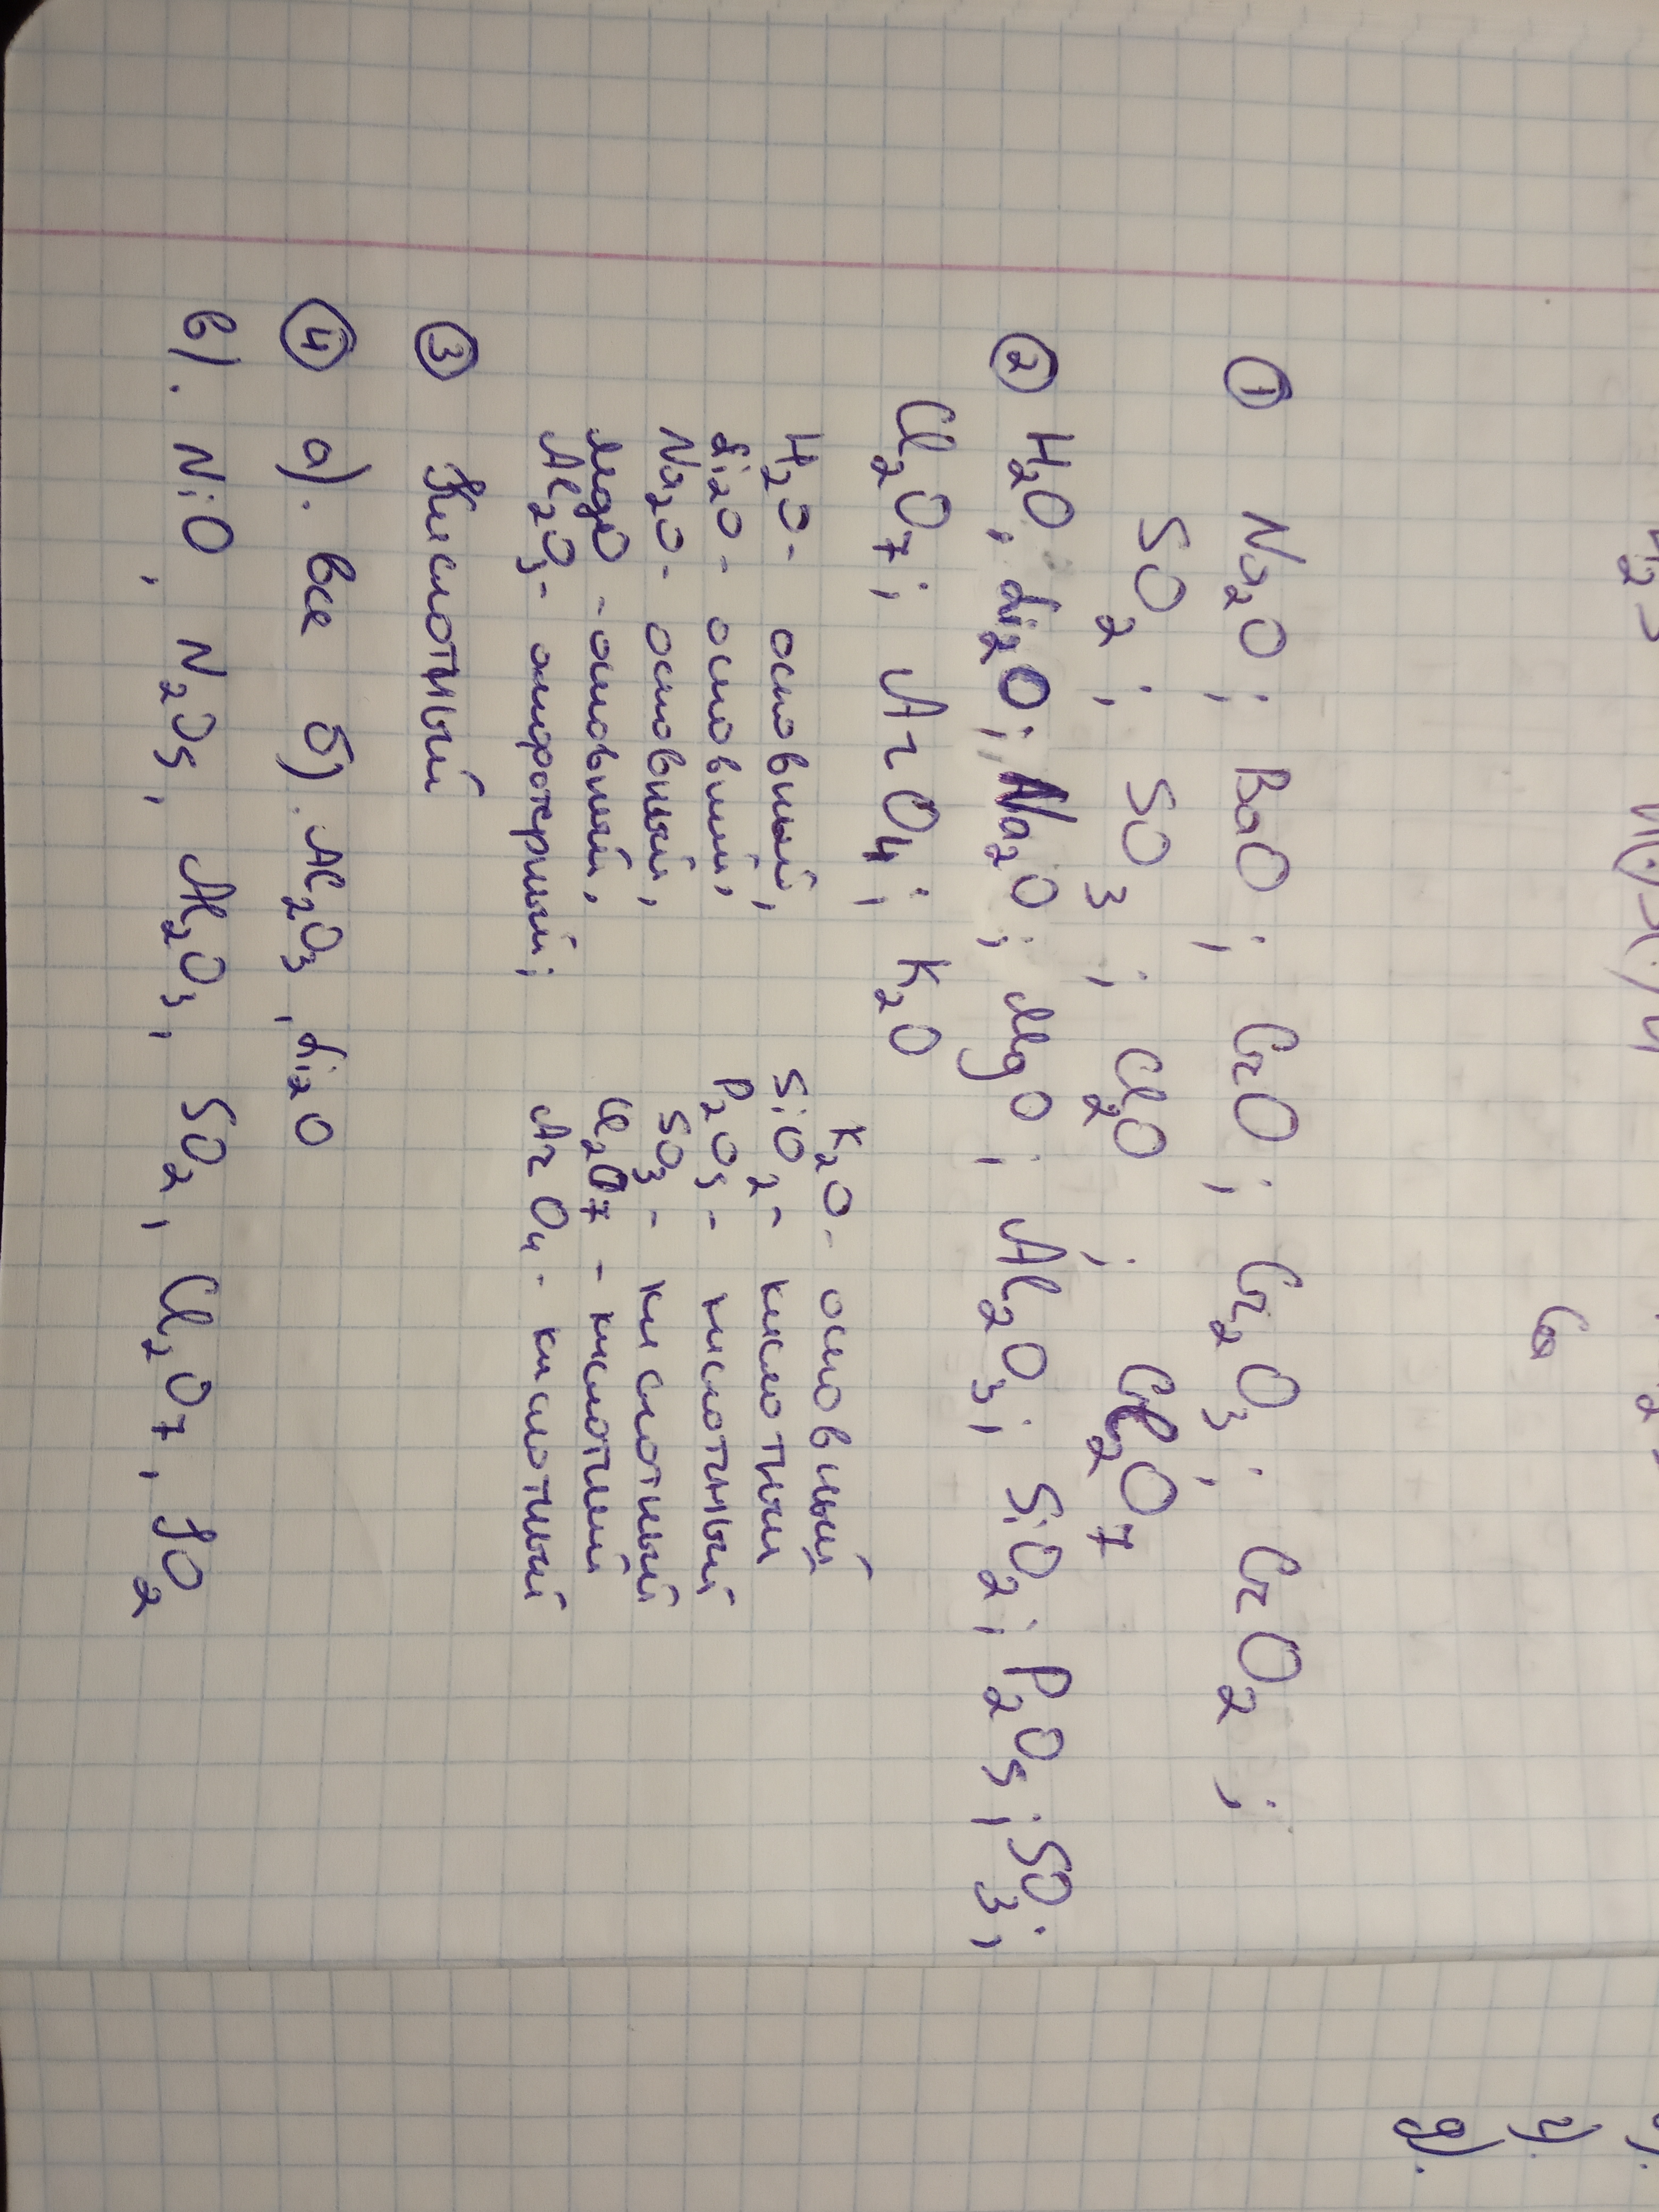 ① Na₂O ; BaO ; CrO ; Cr₂O₃ ; CrO₂ ;
SO₂ ; SO₃ ; Cl₂O ; Cl₂O₇
② H₂O ; Li₂O ; Na₂O ; MgO ; Al₂O₃ ; SiO₂ ; P₂O₅ ; SO₃ ;
Cl₂O₇ ; ArO₄ ; K₂O
H₂O - основный,
Li₂O - основный,
Na₂O - основный,
MgO - основный,
Al₂O₃ - амфотерный ;
K₂O - основный
SiO₂ - кислотный
P₂O₅ - кислотный
SO₃ - кислотный
Cl₂O₇ - кислотный
ArO₄ - кислотный
③ Кислотный
④ а). все б). Al₂O₃ , Li₂O
в). NiO , N₂O₅ , Al₂O₃ , SO₂ , Cl₂O₇ , SO₂